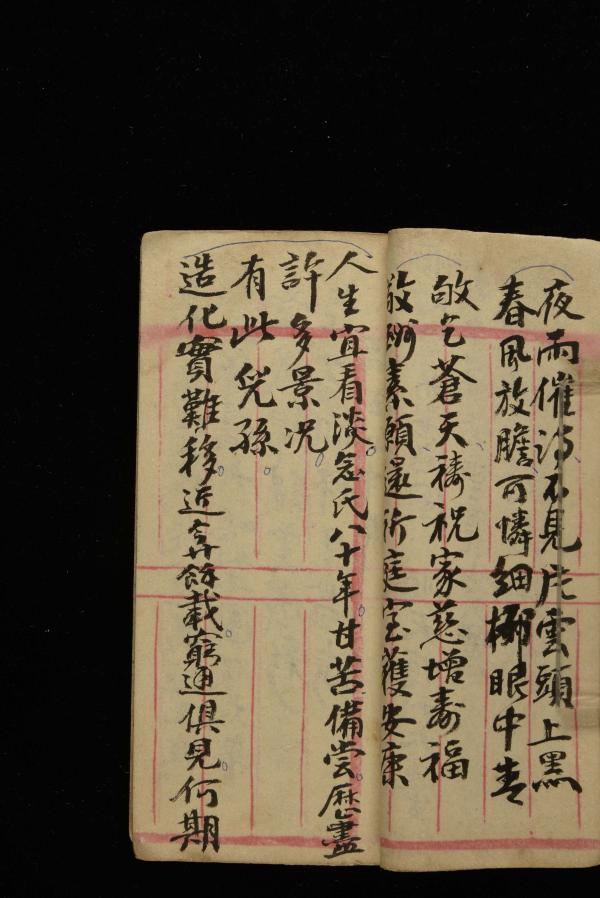 夜雨催詩不見片雲頭上黑
春風放膽可憐細柳眼中青
敬乞蒼天禱祝家慈增壽福
敬酬素願還祈庭室獲安康
人生宜看淡氏八十年甘苦備嘗歷盡
許多景況
造化實難移近餘載窮通俱見何期
有此兒孫